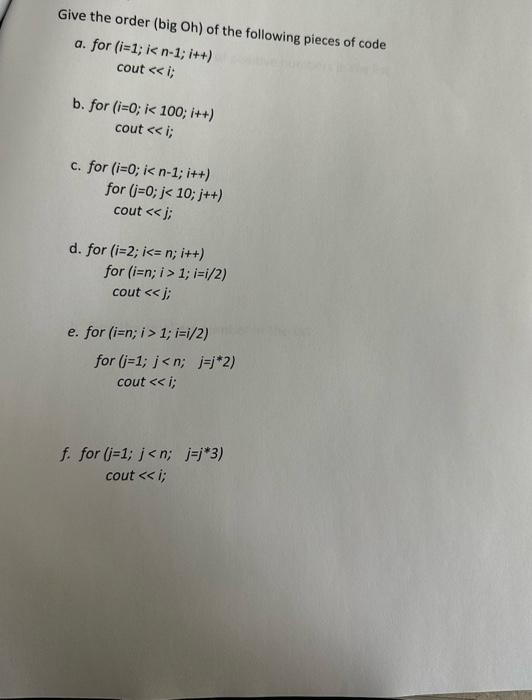 Give the order (big Oh) of the following pieces of code
a. for (i=1; i< n-1; i++)
cout << i;
b. for (i=0; i< 100; i++)
cout << i;
c. for (i=0; i< n-1; i++)
for (j=0; j< 10; j++)
cout << j;
d. for (i=2; i<= n; i++)
for (i=n; i > 1; i=i/2)
cout << j;
e. for (i=n; i > 1; i=i/2)
for (j=1; j < n; j=j*2)
cout << i;
f. for (j=1; j < n; j=j*3)
cout << i;